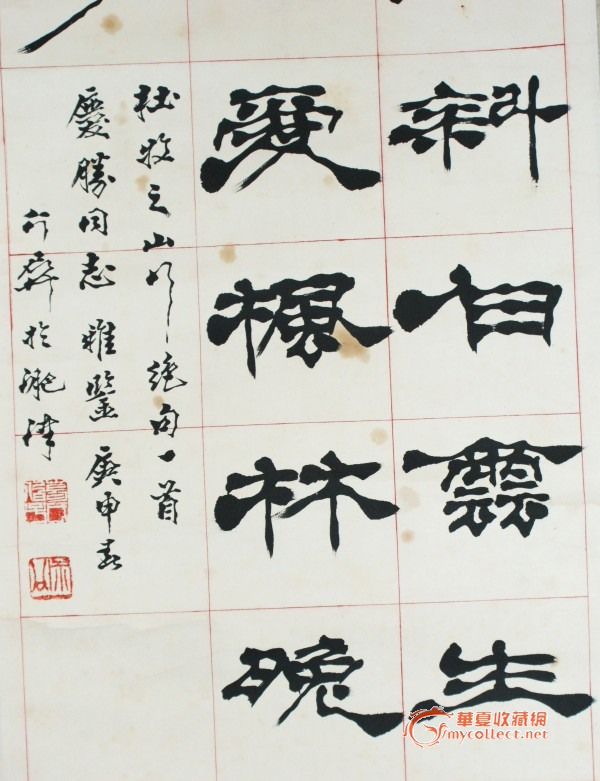 斜白雲生
愛楓林晚
杜牧之山行絕句一首
慶勝同志雅鑒 庚申春
介屏於淝津
華夏收藏網
mycollect.net